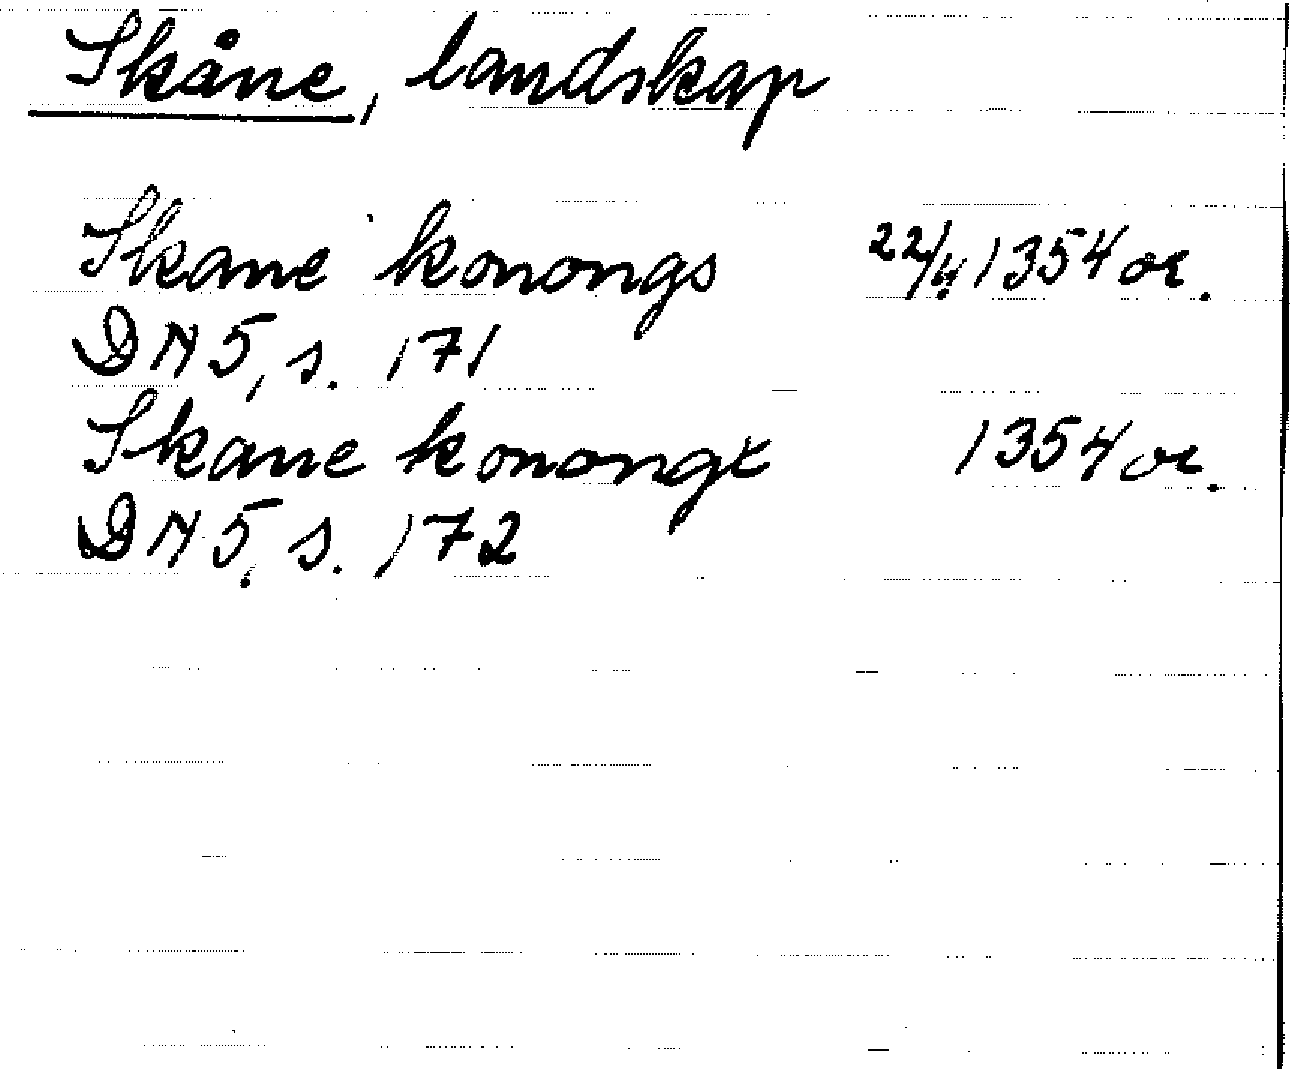 Skåne, landskap
Skane konongs 22/4 1354 or.
DN 5, s. 171
Skane konongx 1354 or.
DN 5, s. 172